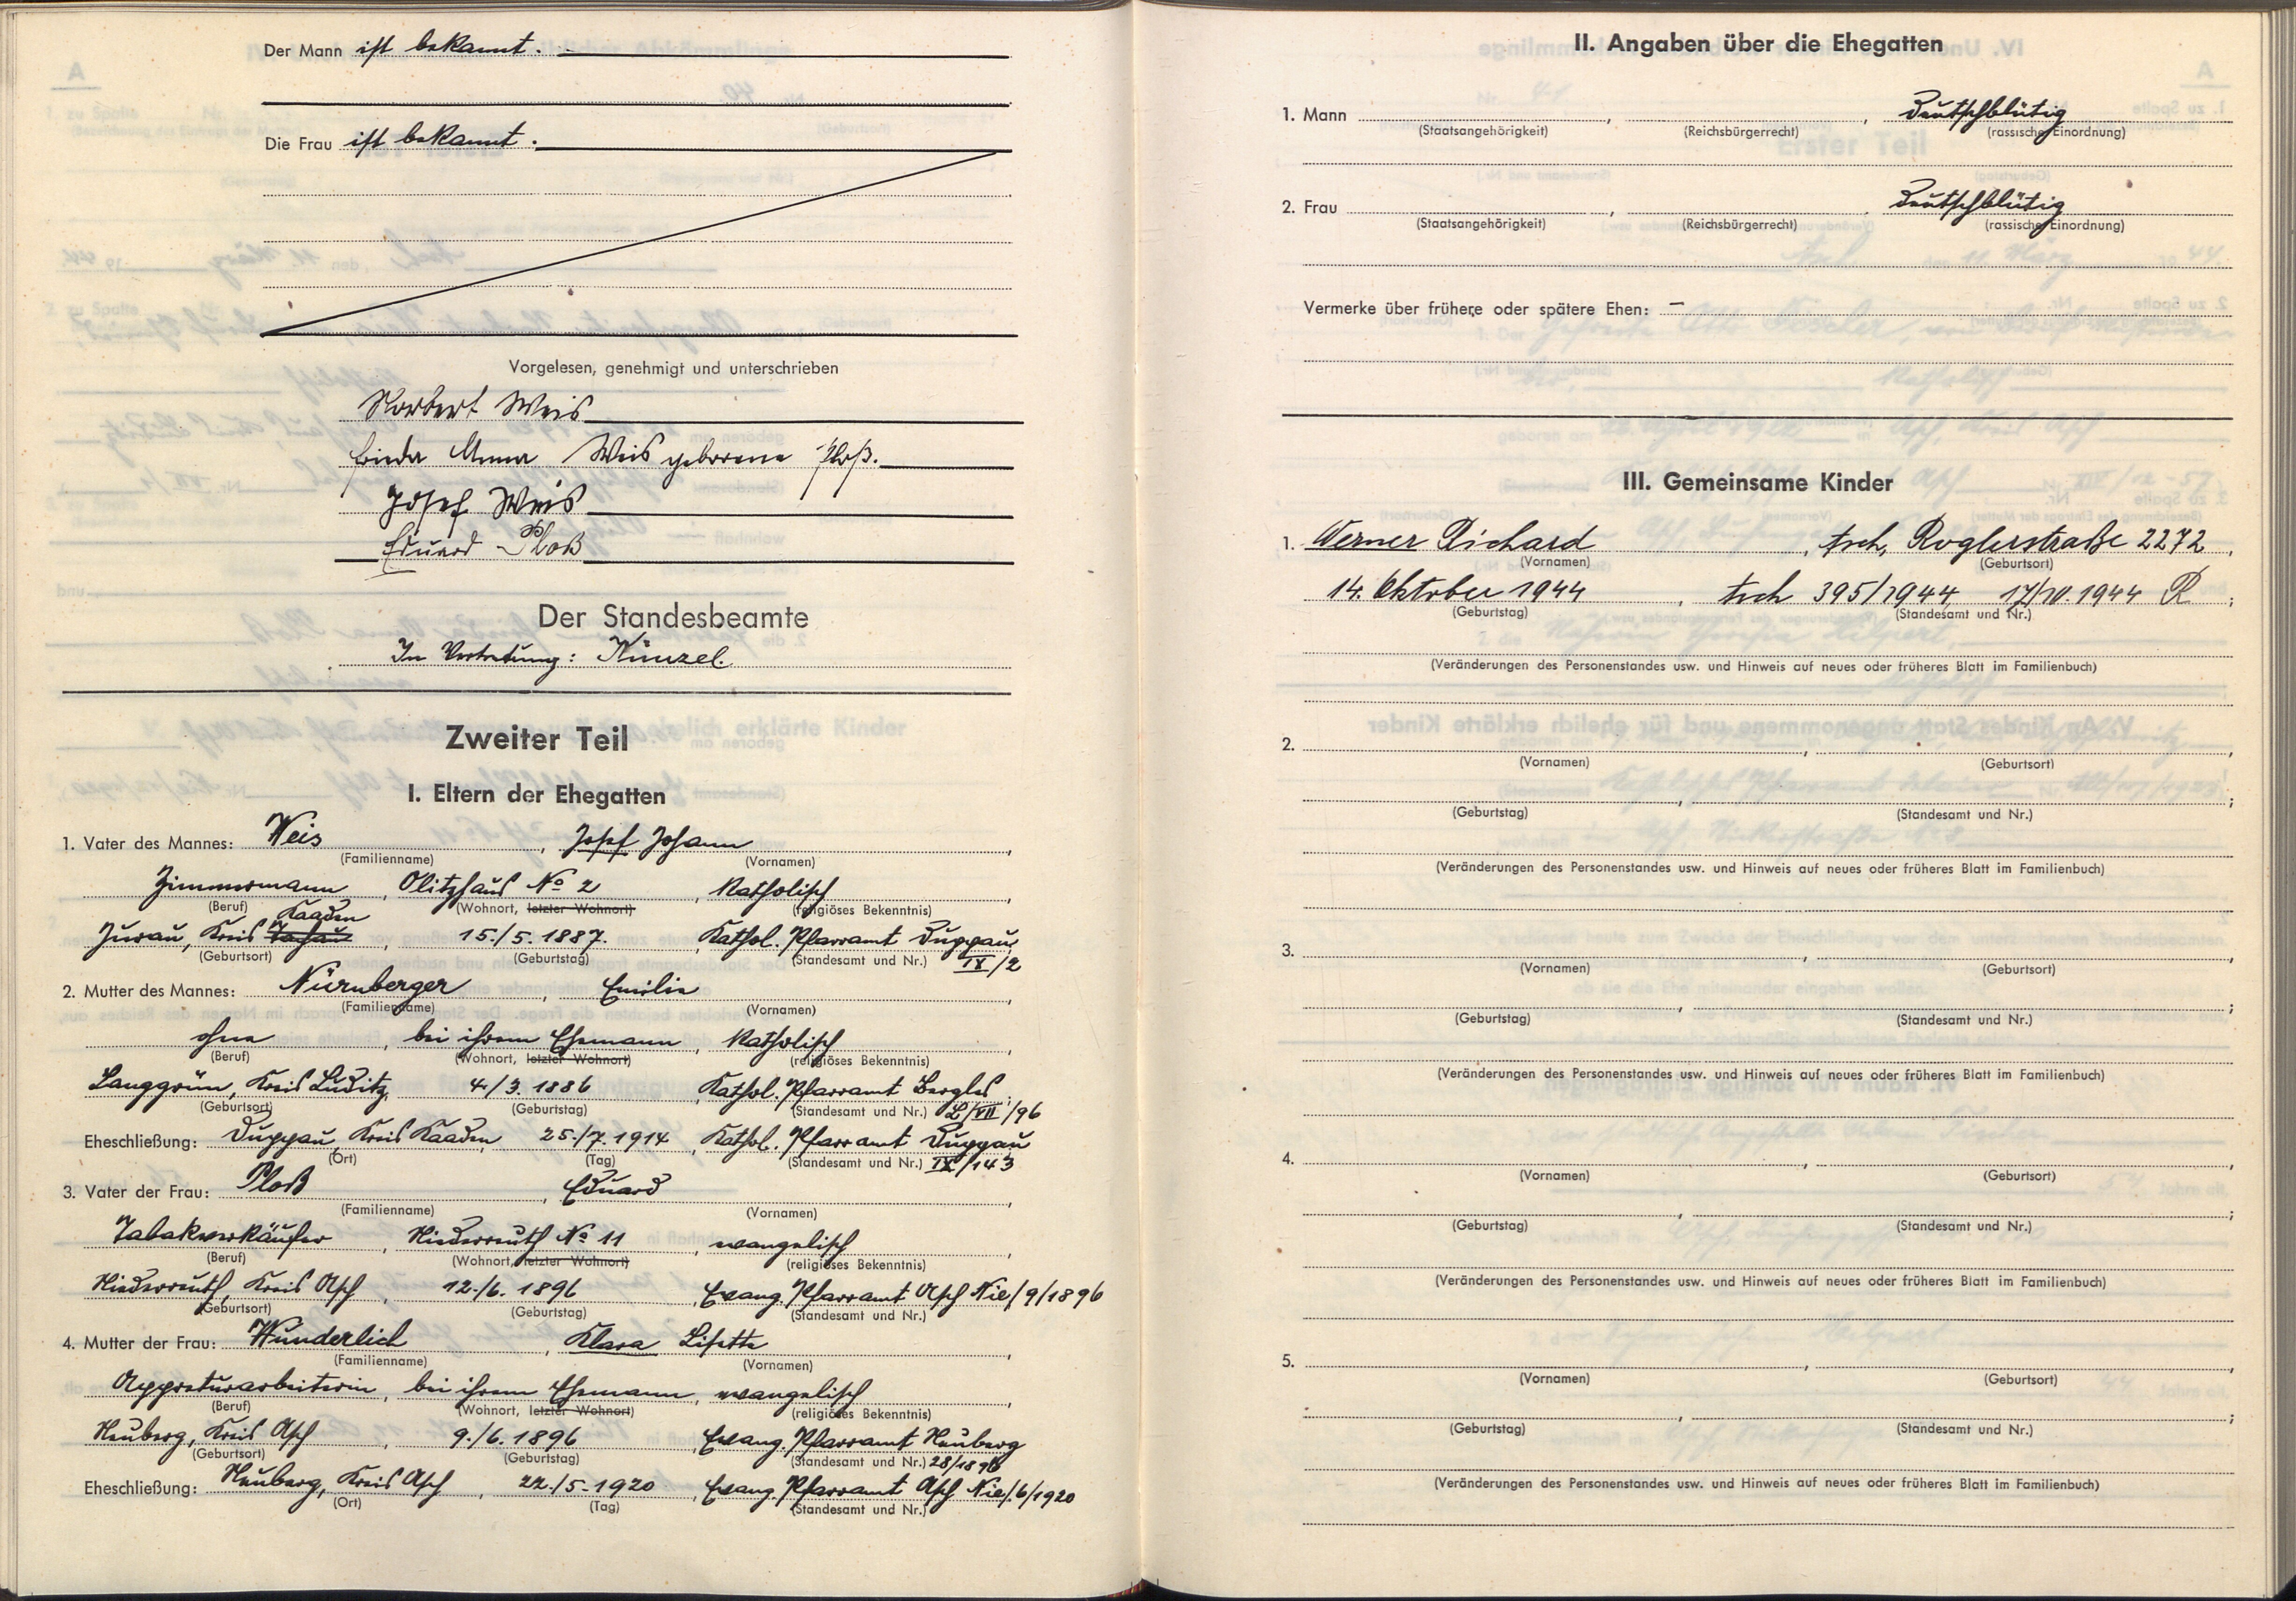 Der Mann ist bekannt.
Die Frau ist bekannt.
Vorgelesen, genehmigt und unterschrieben
Norbert Weis
Frieda Anna Weis geborene Ploß.
Josef Weis
Eduard Ploß
Der Standesbeamte
In Vertretung: Künzel.
Zweiter Teil
I. Eltern der Ehegatten
1. Vater des Mannes: Weis, Josef Johann,
(Familienname) (Vornamen)
Zimmermann, Olitzhaus No 2, Katholisch,
(Beruf) (Wohnort, letzter Wohnort) (religiöses Bekenntnis)
Kaaden
Jurau, Kreis Tachau, 15./5. 1887., Kathol. Pfarramt Duppau
(Geburtsort) (Geburtstag) (Standesamt und Nr.) IX/2
2. Mutter des Mannes: Nürnberger, Emilie,
(Familienname) (Vornamen)
ohne, bei ihrem Ehemann, Katholisch,
(Beruf) (Wohnort, letzter Wohnort) (religiöses Bekenntnis)
Langgrün, Kreis Luditz, 4./3. 1886, Kathol. Pfarramt Bergles
(Geburtsort) (Geburtstag) (Standesamt und Nr.) L/VII/96
Eheschließung: Duppau, Kreis Kaaden, 25./7. 1914, Kathol. Pfarramt Duppau
(Ort) (Tag) (Standesamt und Nr.) IX/143
3. Vater der Frau: Ploß, Eduard,
(Familienname) (Vornamen)
Tabakverkäufer, Niederreuth No 11, evangelisch,
(Beruf) (Wohnort, letzter Wohnort) (religiöses Bekenntnis)
Niederreuth, Kreis Asch, 12./6. 1896, Evang. Pfarramt Asch Nie/9/1896
(Geburtsort) (Geburtstag) (Standesamt und Nr.)
4. Mutter der Frau: Wunderlich, Klara Lisette,
(Familienname) (Vornamen)
Appreturarbeiterin, bei ihrem Ehemann, evangelisch,
(Beruf) (Wohnort, letzter Wohnort) (religiöses Bekenntnis)
Neuberg, Kreis Asch, 9./6. 1896, Evang. Pfarramt Neuberg
(Geburtsort) (Geburtstag) (Standesamt und Nr.) 28/1896
Eheschließung: Neuberg, Kreis Asch, 22./5. 1920, Evang. Pfarramt Asch Nie/6/1920
(Ort) (Tag) (Standesamt und Nr.)
II. Angaben über die Ehegatten
1. Mann , , Deutschblütig
(Staatsangehörigkeit) (Reichsbürgerrecht) (rassische Einordnung)
2. Frau , , Deutschblütig
(Staatsangehörigkeit) (Reichsbürgerrecht) (rassische Einordnung)
Vermerke über frühere oder spätere Ehen: –
III. Gemeinsame Kinder
1. Werner Richard, Asch, Roglerstraße 2272,
(Vornamen) (Geburtsort)
14. Oktober 1944, Asch 395/1944, 17/10. 1944 R;
(Geburtstag) (Standesamt und Nr.)
(Veränderungen des Personenstandes usw. und Hinweis auf neues oder früheres Blatt im Familienbuch)
2. , ,
(Vornamen) (Geburtsort)
, ;
(Geburtstag) (Standesamt und Nr.)
(Veränderungen des Personenstandes usw. und Hinweis auf neues oder früheres Blatt im Familienbuch)
3. , ,
(Vornamen) (Geburtsort)
, ;
(Geburtstag) (Standesamt und Nr.)
(Veränderungen des Personenstandes usw. und Hinweis auf neues oder früheres Blatt im Familienbuch)
4. , ,
(Vornamen) (Geburtsort)
, ;
(Geburtstag) (Standesamt und Nr.)
(Veränderungen des Personenstandes usw. und Hinweis auf neues oder früheres Blatt im Familienbuch)
5. , ,
(Vornamen) (Geburtsort)
, ;
(Geburtstag) (Standesamt und Nr.)
(Veränderungen des Personenstandes usw. und Hinweis auf neues oder früheres Blatt im Familienbuch)